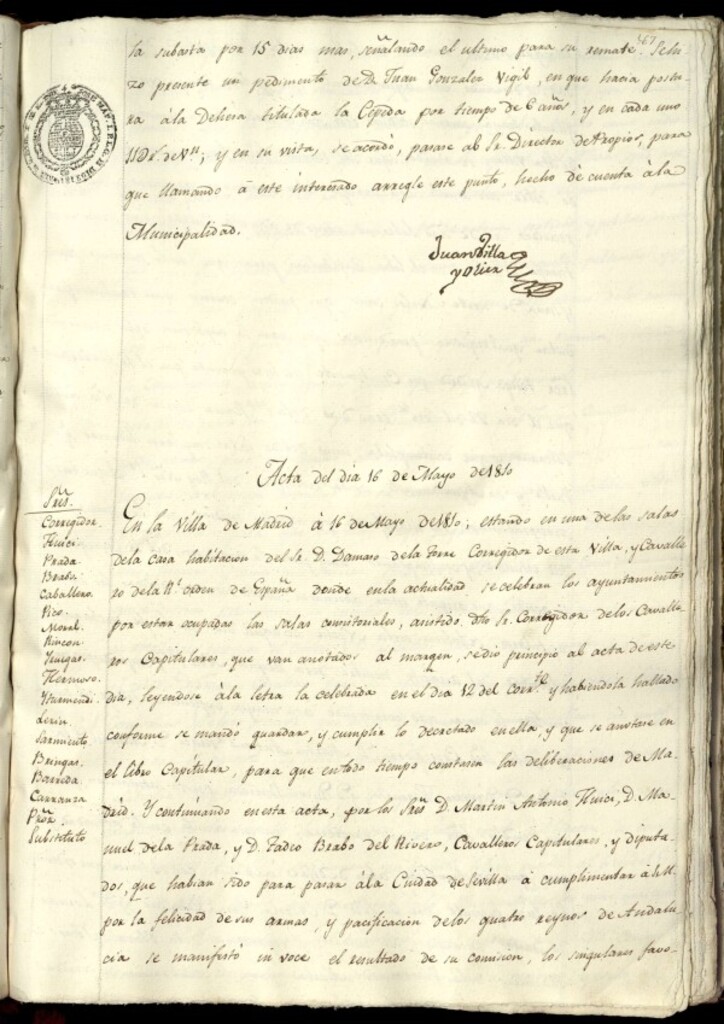 67
la subasta por 15 dias mas, señalando el ultimo para su remate. Se hi-
zo presente un pedimento de D. Juan Gonzalez Vigil, en que hacia postu-
ra àla Dehesa titulada la Cepeda por tiempo de 6 años, y en cada uno
de Vn; y en su vista, se acordò, pasase al Sr. Director de Propios, para
que llamando à este interesado arregle este punto, hecho dè cuenta àla
Municipalidad.
Juan Villa
y Olier
Acta del dia 16 de Mayo de 1810
Sres.
Corregidor.
Huici.
Prada.
Brabo.
Caballero.
Pico.
Moral.
Rincon.
Hermoso.
Yturmendi.
Lerin.
Sarmiento.
Bringas.
Barreda.
Carranza
Pror.
Substituto
En la Villa de Madrid à 16 de Mayo de 1810; estando en una delas salas
dela casa habitacion del Sr. D. Damaso dela Torre Corregidor de esta Villa, y Cavalle-
ro dela Rl. orden de España donde enla actualidad se celebran los ayuntamientos
por estar ocupadas las salas consistoriales, asistido Dho Sr. Corregidor delos Cavalle-
ros Capitulares, que van anotados al margen, sediò principio al acta de este
dia, leyendose àla letra la celebrada en el dia 12 del corrte. y habiendola hallado
conforme se mandò guardar, y cumplir lo decretado enella, y que se anotase en
el libro Capitular, para que entodo tiempo constasen las deliberaciones de Ma-
drid. Y continuando enesta acta, por los Sres D. Martin Antonio Huici, D. Ma-
nuel dela Prada, y D. Tadeo Brabo del Rivero, Cavalleros Capitulares, y diputa-
dos, que habian sido para pasar àla Ciudad de Sevilla à cumplimentar à S.M.
por la felicidad de sus armas, y pacificacion delos quatro reynos de Andalu-
cia se manifestò in voce el resultado de su comision, los singulares favo-